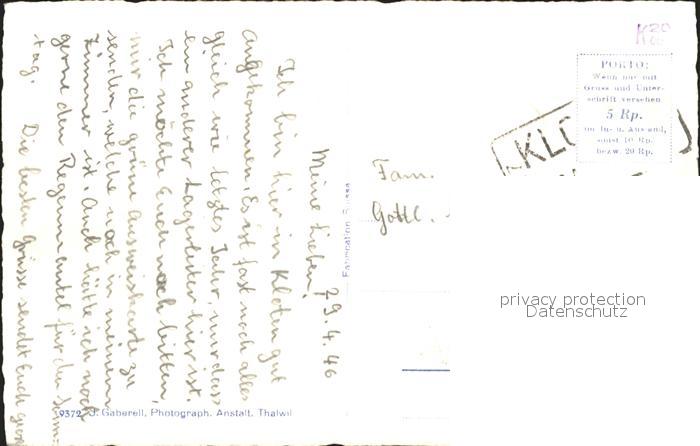 29.4.46
Meine Lieben!
Ich bin hier in Kloten gut
angekommen. Es ist fast noch alles
gleich wie letztes Jahr, nur dass
ein anderer Lagerleiter hier ist.
Ich möchte Euch noch bitten,
mir die grüne Ausweiskarte zu
senden, welche noch in meinem
Zimmer ist. Auch hätte ich noch
gerne den Regenmantel für den Sonn=
tag. Die besten Grüsse sendet Euch
9372 J. Gaberell, Photograph. Anstalt, Thalwil
Fabrication Suisse
K20
PORTO:
Wenn nur mit
Gruss und Unter-
schrift versehen
5 Rp.
im In- u. Ausland,
sonst 10 Rp.
bezw. 20 Rp.
KLO
Fam.
Gottl.
privacy protection
Datenschutz